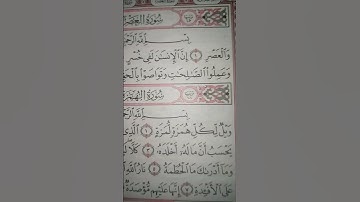 سُورَةُ العَصْرِ
بِسْمِ ٱللَّهِ ٱلرَّحْمَٰ
وَٱلْعَصْرِ ۝١ إِنَّ ٱلْإِنسَٰنَ لَفِى خُسْرٍ
وَعَمِلُوا۟ ٱلصَّٰلِحَٰتِ وَتَوَاصَوْا۟ بِٱلْحَقِّ
سُورَةُ الهُمَزَةِ
بِسْمِ ٱللَّهِ ٱلرَّحْمَٰ
وَيْلٌ لِّكُلِّ هُمَزَةٍ لُّمَزَةٍ ۝١ ٱلَّذِى
يَحْسَبُ أَنَّ مَالَهُۥٓ أَخْلَدَهُۥ ۝٣ كَلَّا
وَمَآ أَدْرَىٰكَ مَا ٱلْحُطَمَةُ ۝٥ نَارُ ٱللَّهِ
عَلَى ٱلْأَفْـِٔدَةِ ۝٧ إِنَّهَا عَلَيْهِم مُّؤْصَدَةٌ